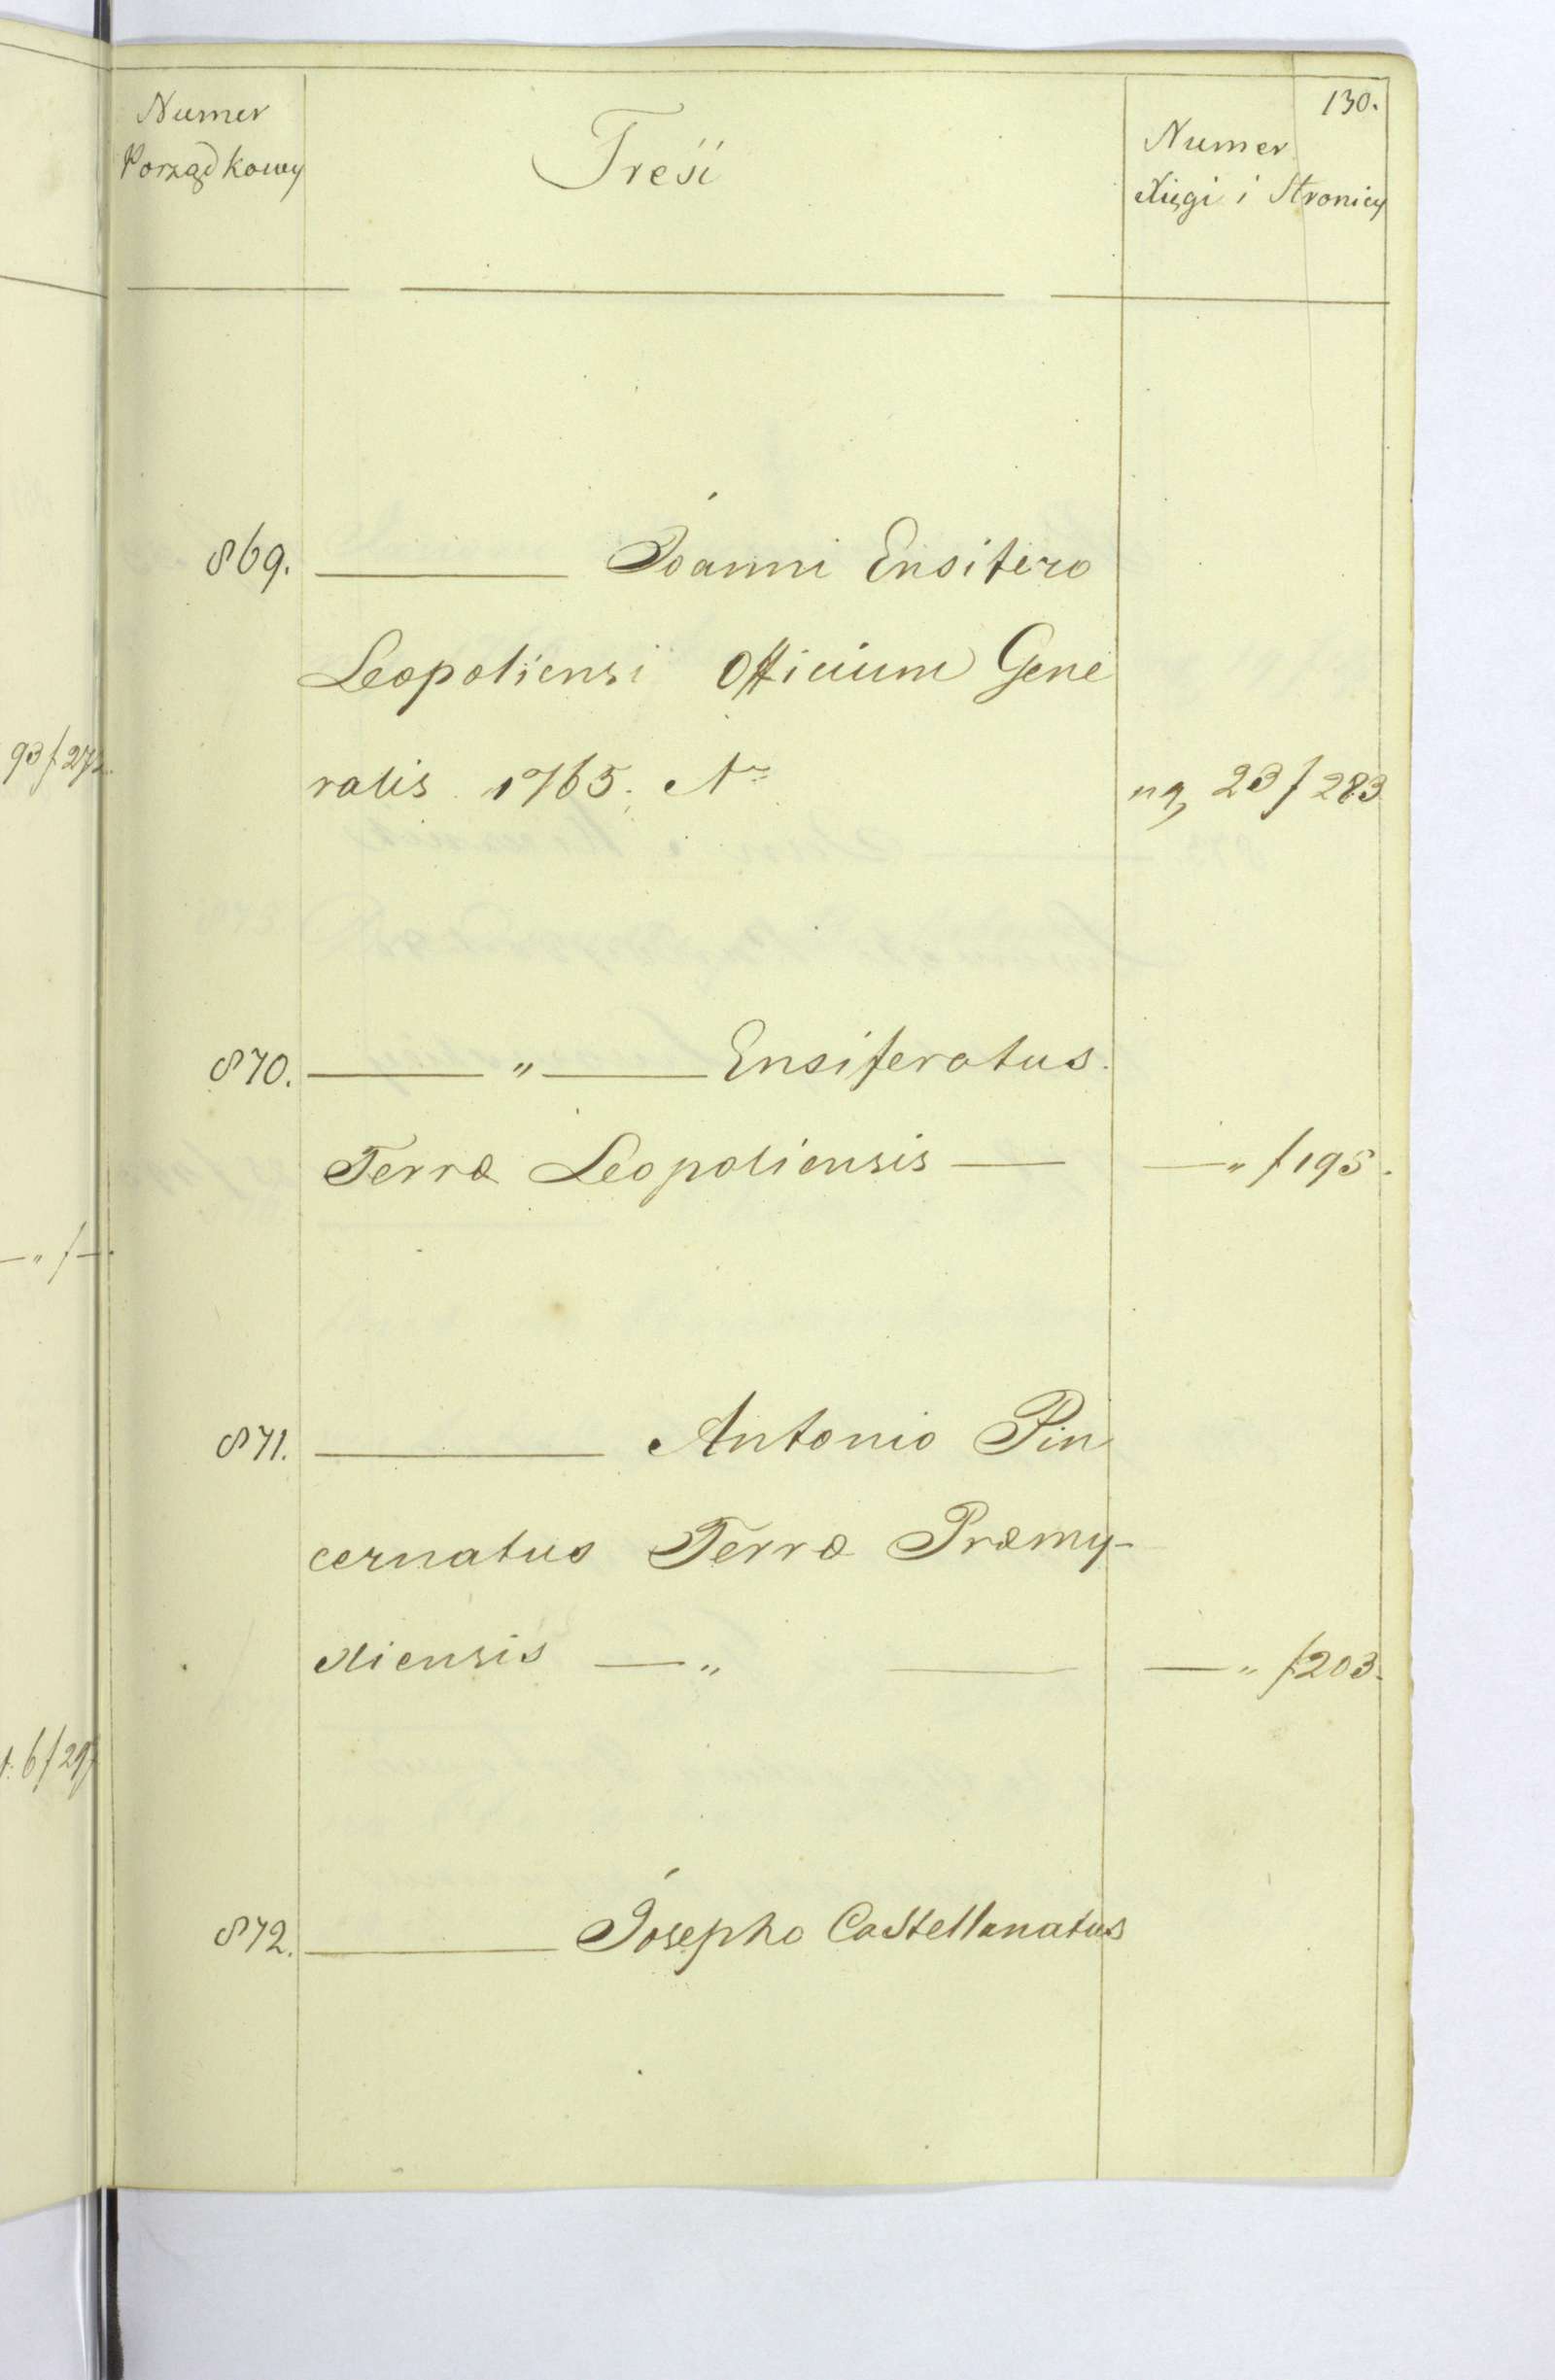 130.
Numer
Porządkowy
Treść
Numer
Xięgi i Stronicy
93/272.
869. ——— Joanni Ensifero
Leopoliensi Officium Gene
ralis 1765. Nr
23/283
870. ——— " ——— Ensiferatus.
Terræ Leopoliensis —
—" /—.
—" /195.
871. ——— Antonio Pin
cernatus Terræ Præmy-
sliensis —"—
—" /203.
872. ——— Josepho Castellanatus